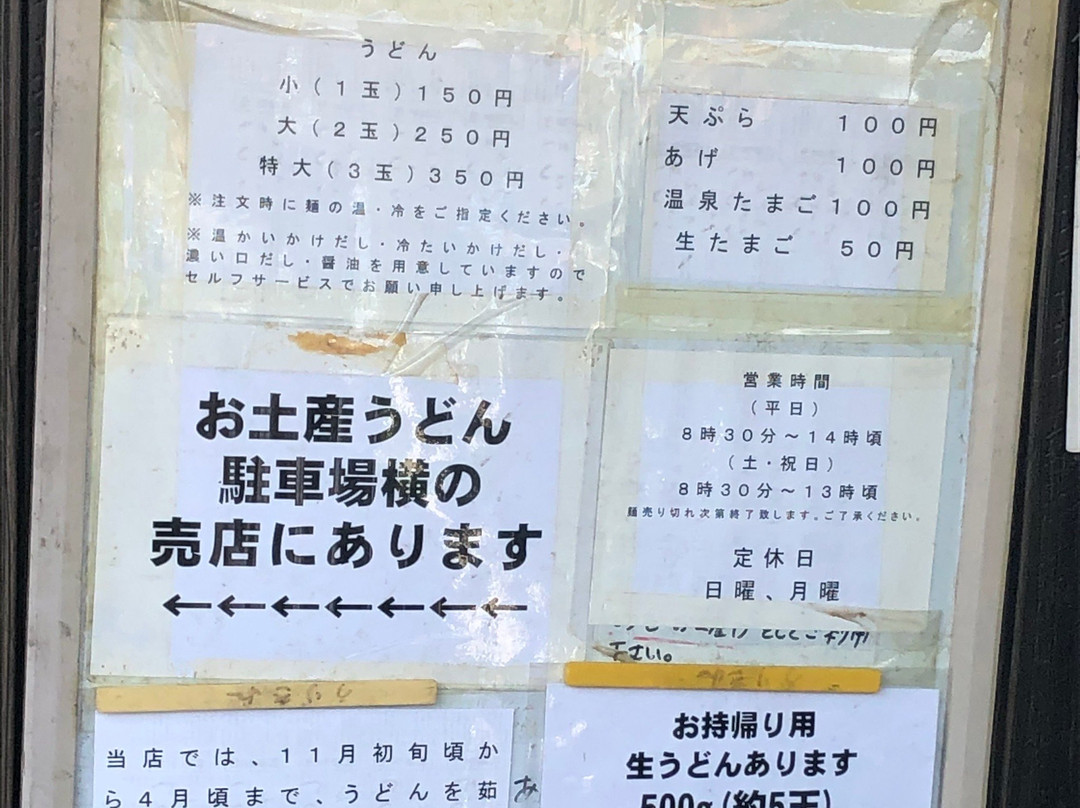 うどん
小(1玉)150円
大(2玉)250円
特大(3玉)350円
※注文時に麺の温・冷をご指定ください。
※温かいかけだし・冷たいかけだし・
濃い口だし・醤油を用意していますので
セルフサービスでお願い申し上げます。
天ぷら 100円
あげ 100円
温泉たまご100円
生たまご 50円
お土産うどん
駐車場横の
売店にあります
←←←←←←←
営業時間
(平日)
8時30分〜14時頃
(土・祝日)
8時30分〜13時頃
麺売り切れ次第終了致します。ご了承ください。
定休日
日曜、月曜
としてご利用
下さい。
当店では、11月初旬頃か
ら4月頃まで、うどんを茹
お持帰り用
生うどんあります
500g(約5玉)